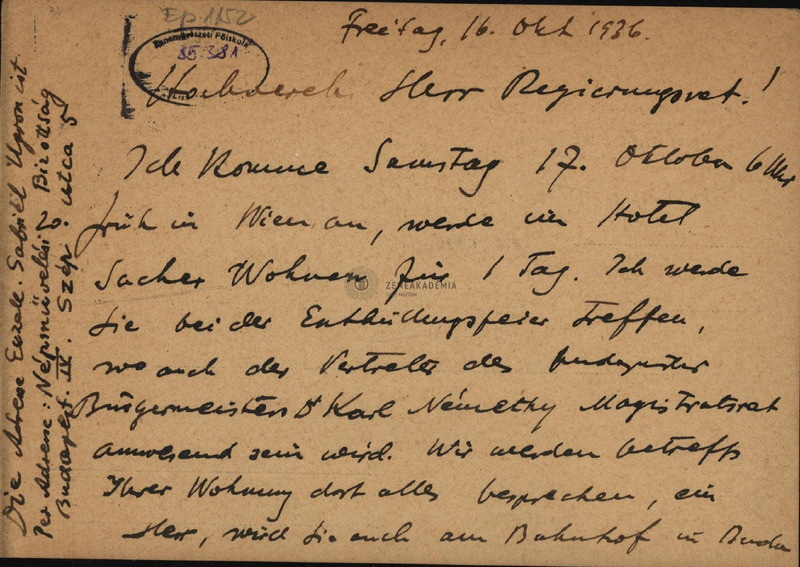 Ep. 1152
Zeneművészeti Főiskola
35.381
Freitag, 16. Okt 1936.
Hochverehr. Herr Regierungsrat!
Ich komme Samstag 17. Oktober 6 Uhr
früh in Wien an, werde im Hotel
Sacher Wohnen für 1 Tag. Ich werde
Sie bei der Enthüllungsfeier treffen,
wo auch der Vertreter des budapester
Bürgermeisters Dr Karl Némethy Magistratsrat
anwesend sein wird. Wir werden betreffs
Ihrer Wohnung dort alles besprechen, ein
Herr, wird Sie auch am Bahnhof in Buda
ZENEAKADÉMIA
Die Adresse Exzell. Gabriel Ugron ist
Per Adresse: Népművelési Bizottság
Budapest. IV. Szép utca 5